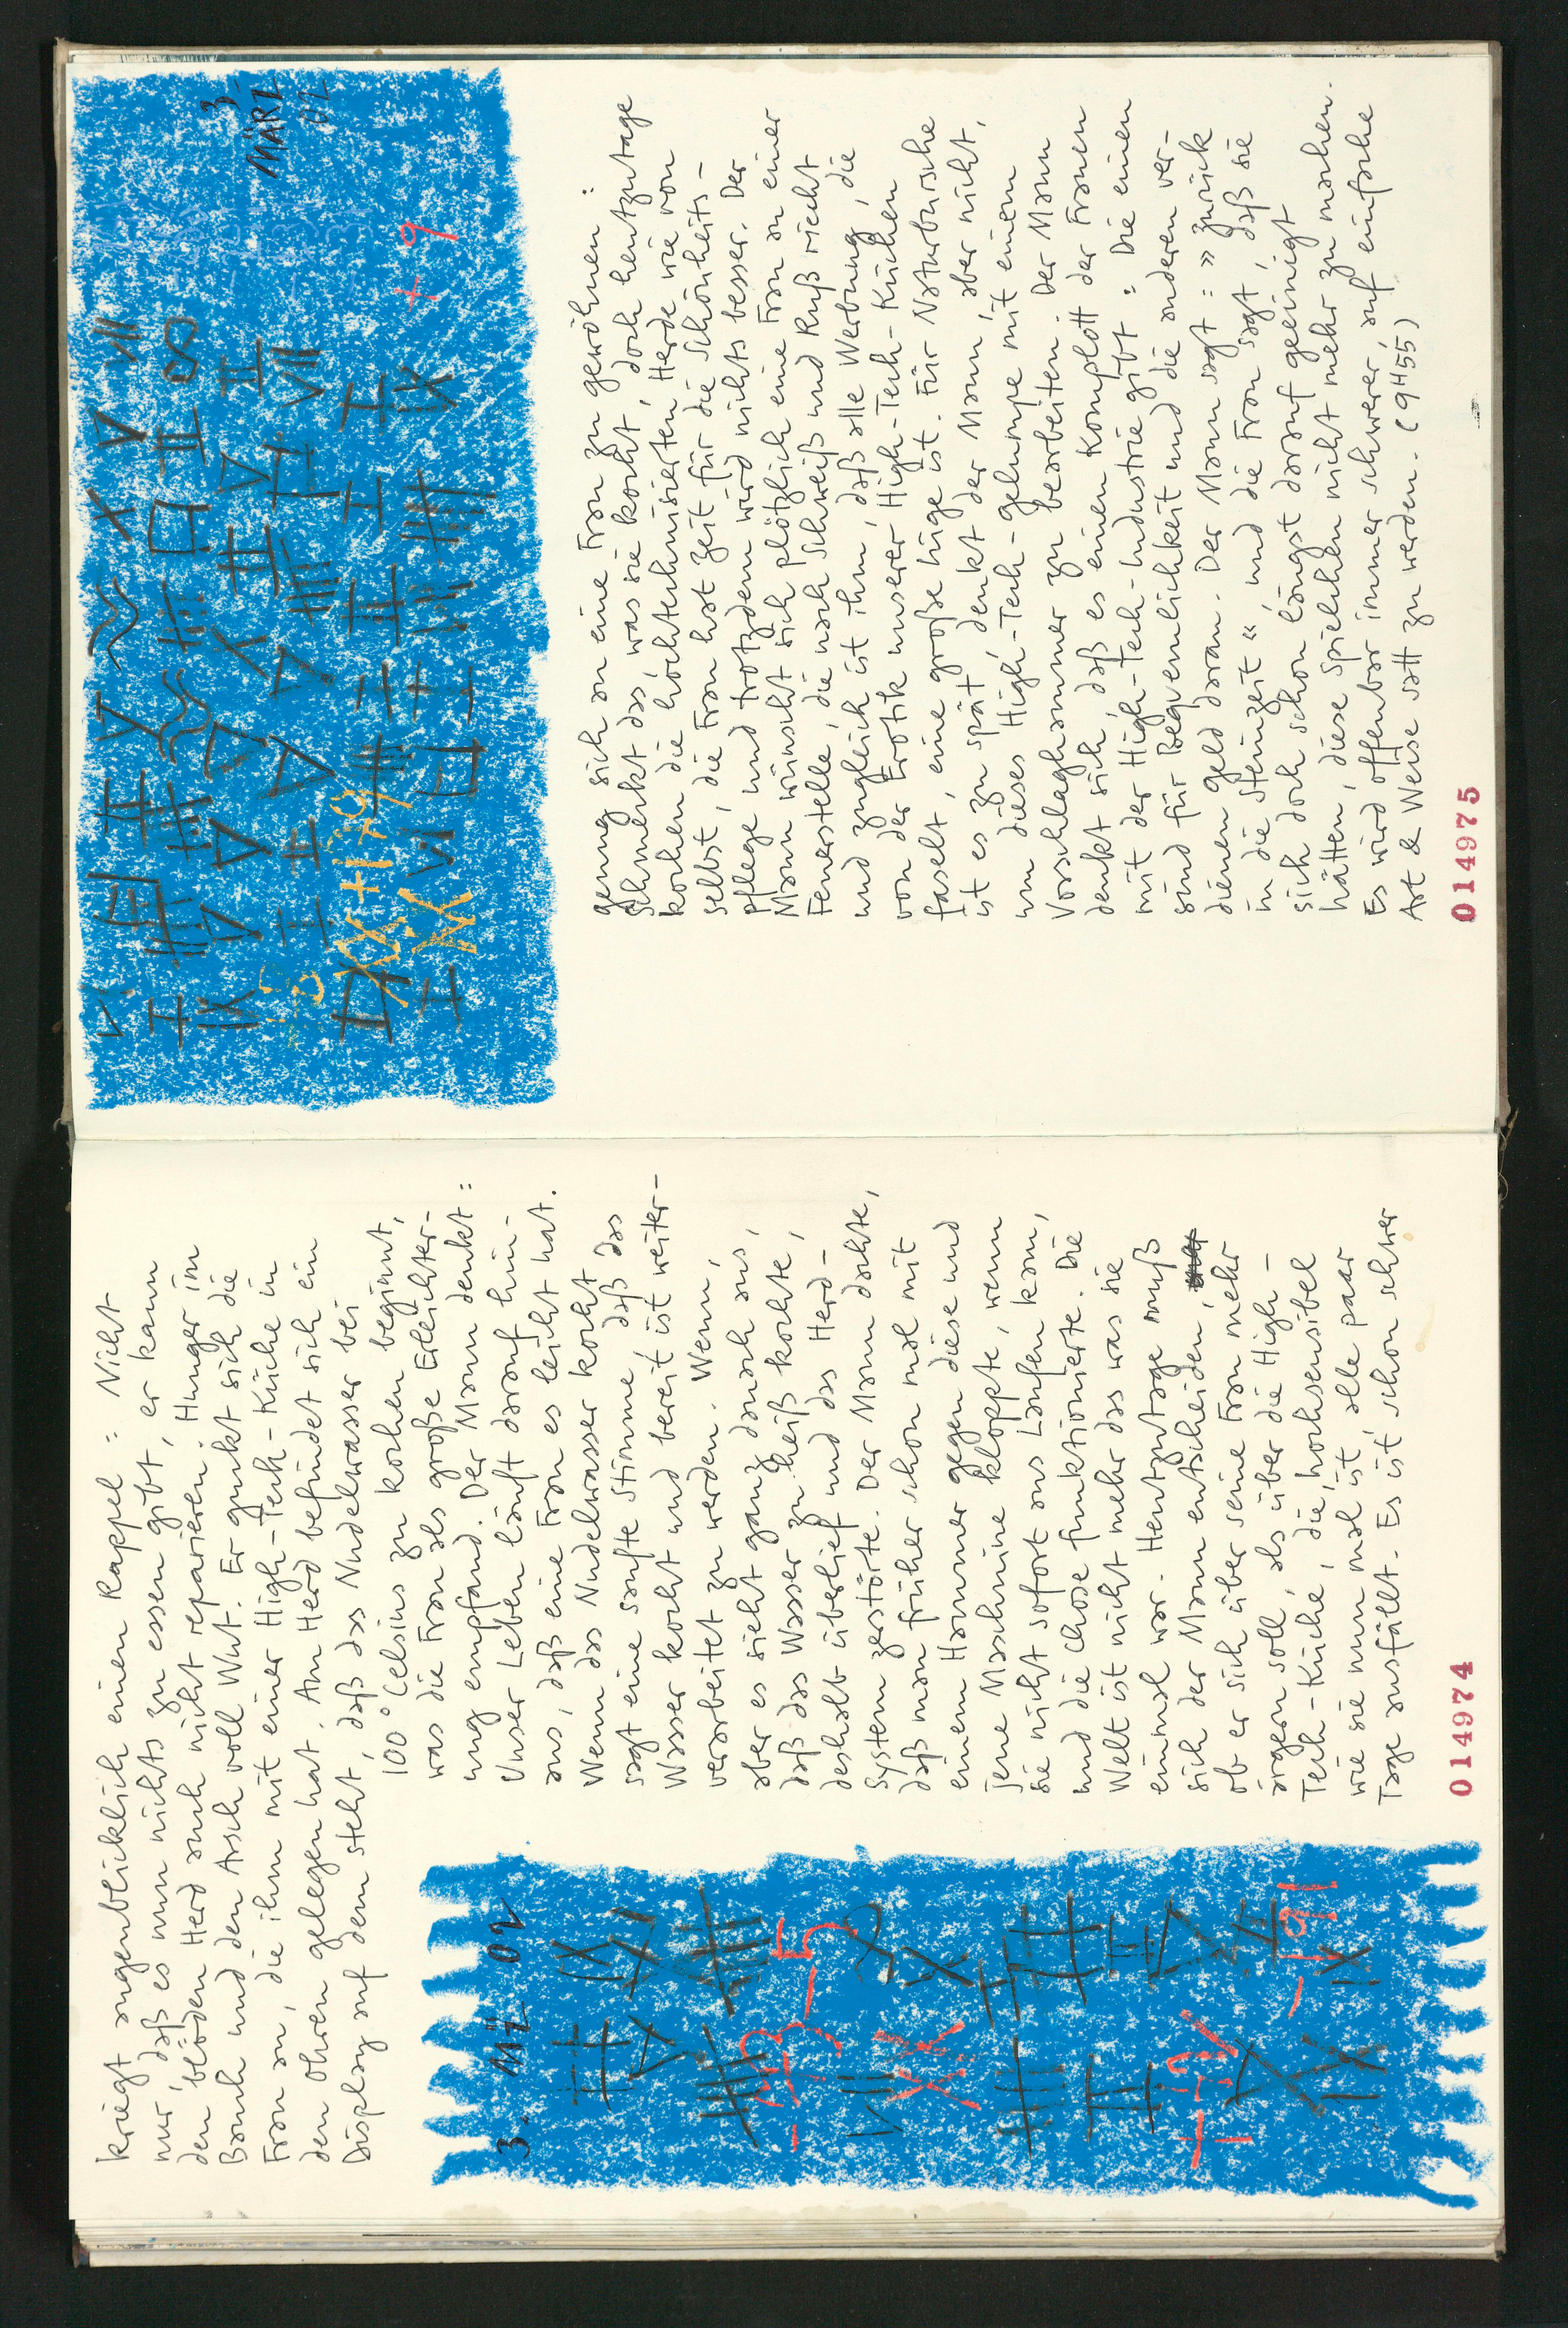 kriegt augenblicklich einen Rappel : Nicht
nur, daß es nun nichts zu essen gibt, er kann
den blöden Herd auch nicht reparieren. Hunger im
Bauch und den Arsch voll Wut. Er guckt sich die
Frau an, die ihm mit einer High-Tech-Küche in
den Ohren gelegen hat. Am Herd befindet sich ein
Display auf dem steht, daß das Nudelwasser bei
100° Celsius zu kochen beginnt,
was die Frau als große Erleichter-
ung empfand. Der Mann denkt :
Unser Leben läuft darauf hin-
aus, daß eine Frau es leicht hat.
Wenn das Nudelwasser kocht
sagt eine sanfte Stimme, daß das
Wasser kocht und bereit ist weiter-
verarbeitet zu werden. Wenn,
aber es sieht ganz danach aus,
daß das Wasser zu heiß kochte,
deshalb überlief und das Herd-
system zerstörte. Der Mann dachte,
daß man früher schon mal mit
einem Hammer gegen diese und
jene Maschine kloppte, wenn
sie nicht sofort ans Laufen kam,
und die Chose funktionierte. Die
Welt ist nicht mehr das was sie
einmal war. Heutzutage muß
sich der Mann entscheiden,
ob er sich über seine Frau mehr
ärgern soll, als über die High-
Tech-Küche, die, hochsensibel
wie sie nun mal ist, alle paar
Tage ausfällt. Es ist schon schwer
3. MÄZ 02
-13-5
+7X
-191
014974
genug sich an eine Frau zu gewöhnen :
Schmeckt das, was sie kocht, doch heutzutage
kochen die hochtechnisierten Herde wie von
selbst, die Frau hat Zeit für die Schönheits-
pflege und trotzdem wird nichts besser. Der
Mann wünscht sich plötzlich eine Frau an einer
Feuerstelle, die nach Schweiß und Ruß riecht
und zugleich ist ihm, daß alle Werbung, die
von der Erotik unserer High-Tech-Küchen
faselt, eine große Lüge ist. Für Naturburische
ist es zu spät, denkt der Mann, aber nicht,
um dieses High-Tech-Gelumpe mit einem
Vorschlaghammer zu bearbeiten. Der Mann
denkt sich, daß es einen Komplott der Frauen
mit der High-Tech-Industrie gibt : Die einen
sind für Bequemlichkeit und die anderen ver-
dienen Geld daran. Der Mann sagt : » Zurück
in die Steinzeit «, und die Frau sagt, daß sie
sich doch schon längst darauf geeinigt
hätten, diese Spielchen nicht mehr zu machen.
Es wird offenbar immer schwerer, auf einfache
Art & Weise satt zu werden. (9H55)
3.
MÄRZ
02
+9
014975